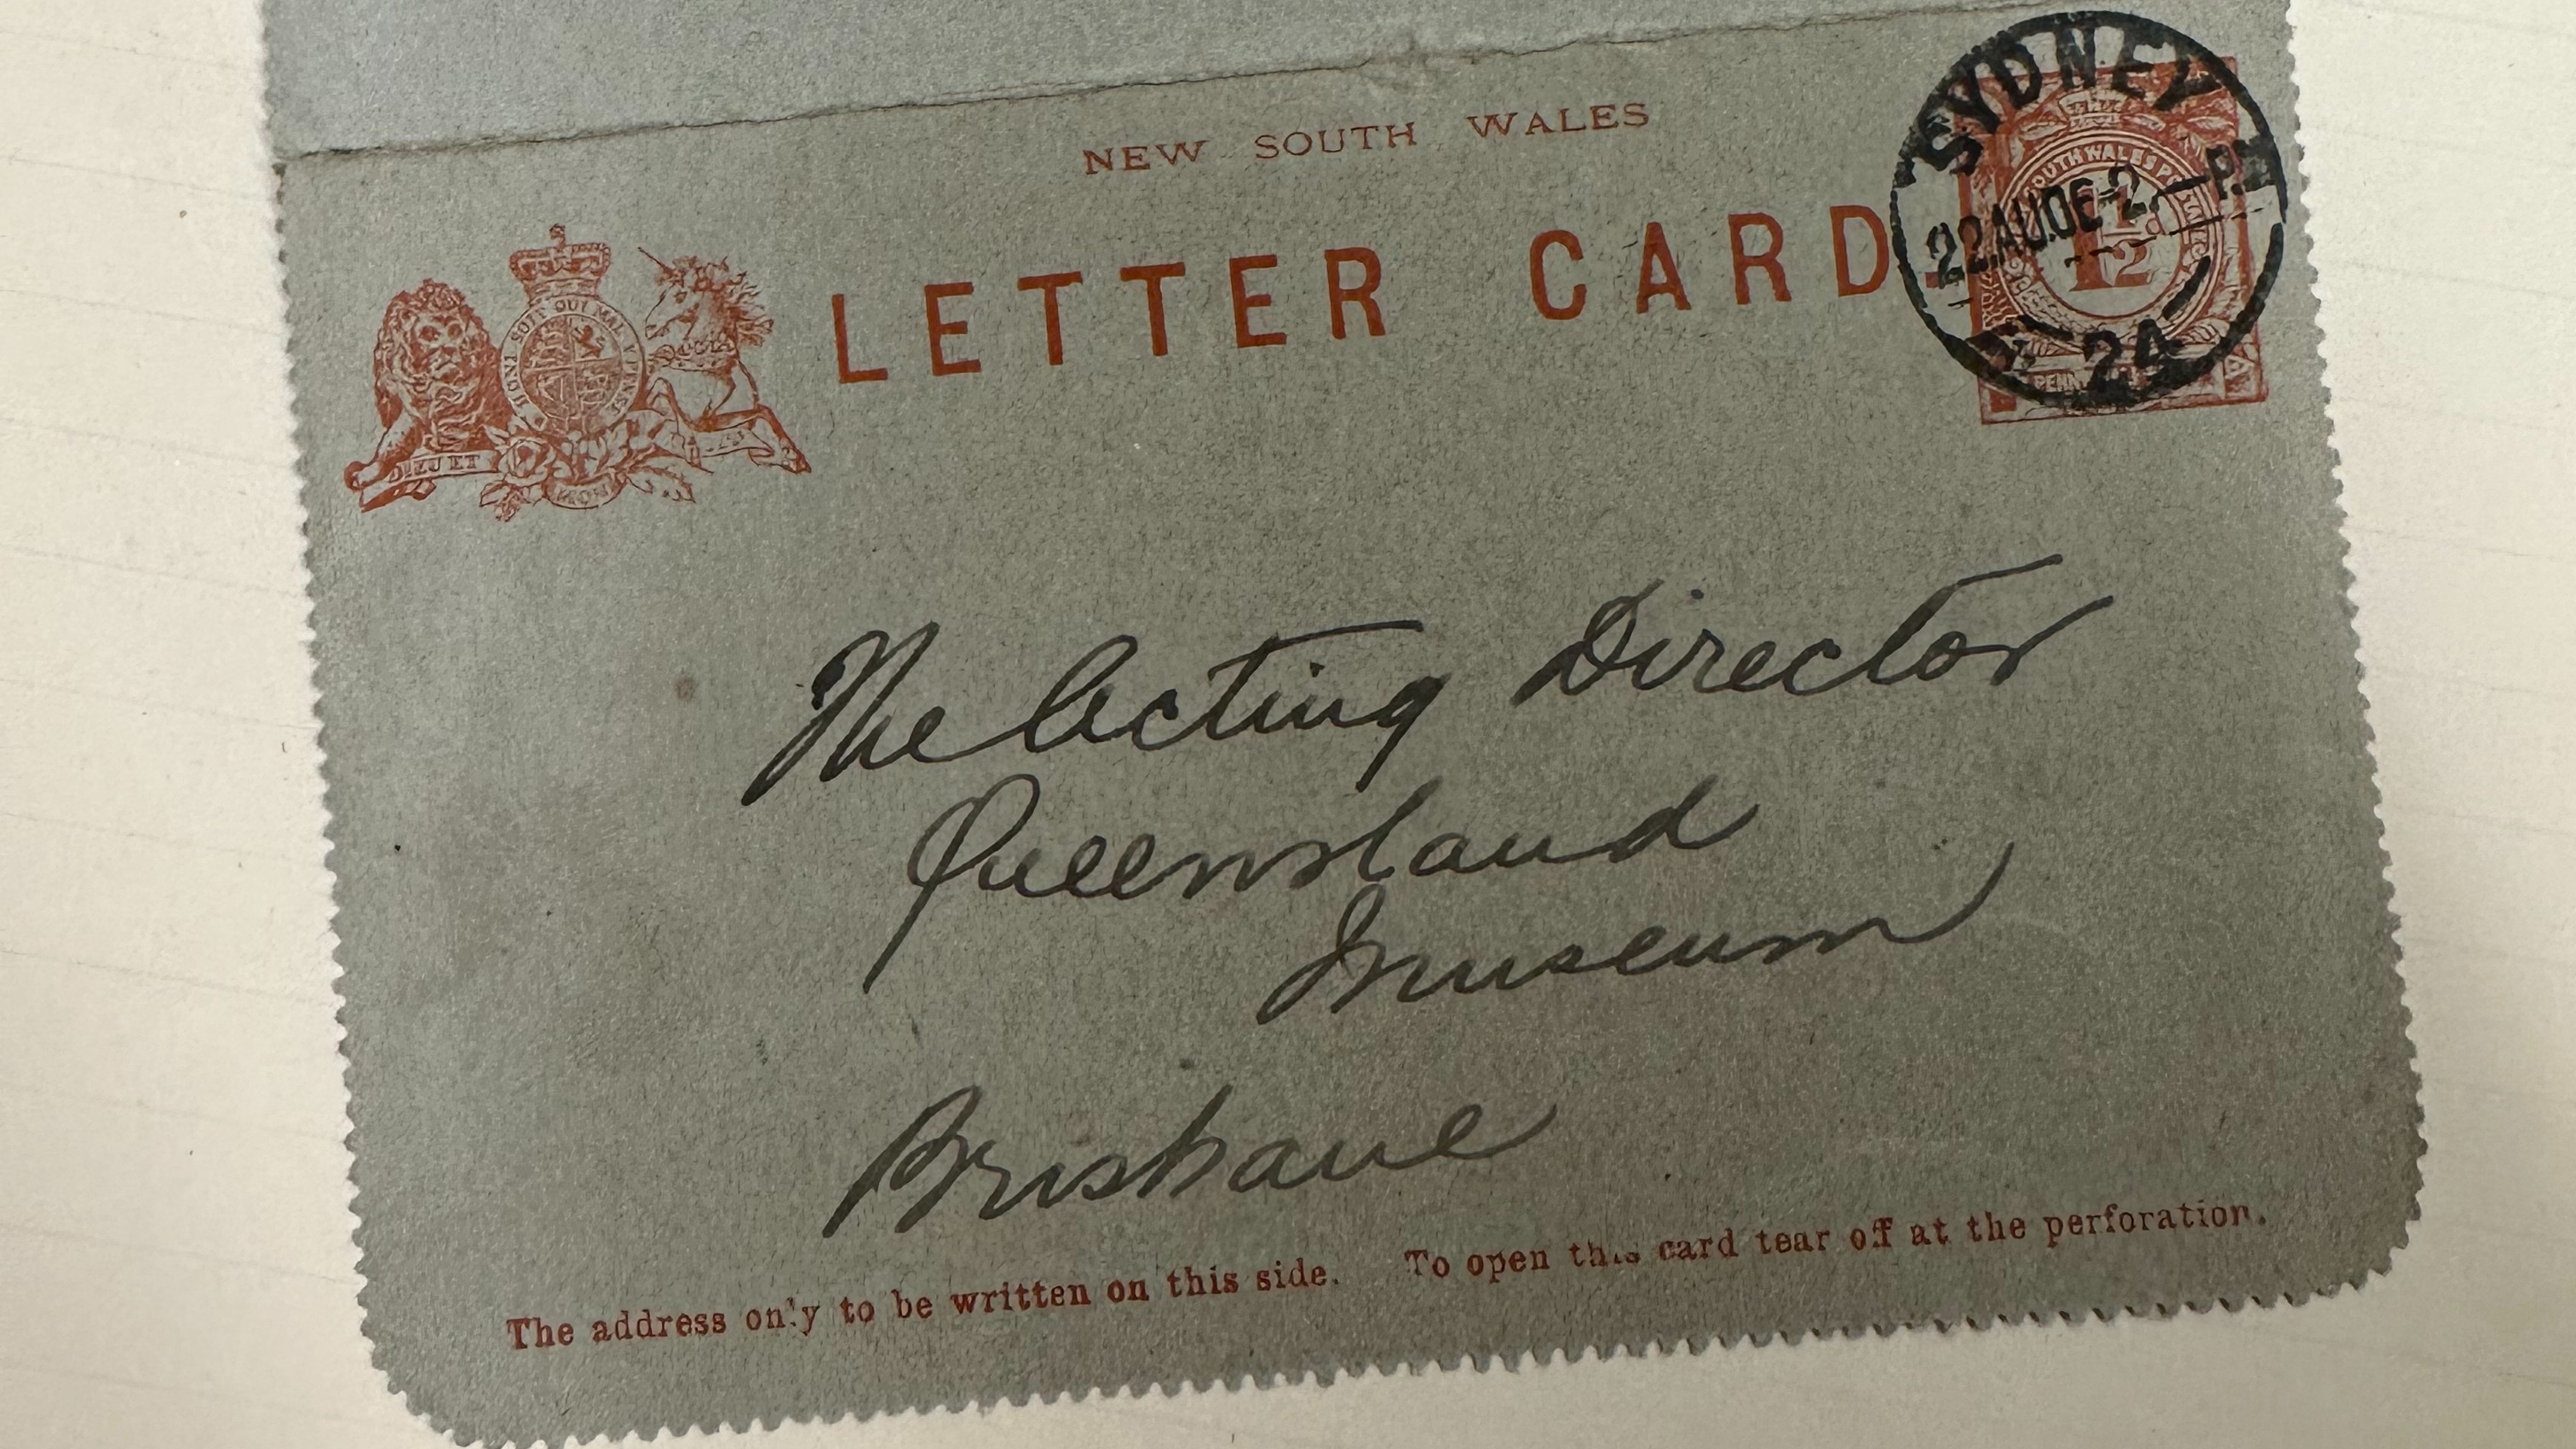 NEW SOUTH WALES
LETTER CARD
SYDNEY
22.AU.06-2.—P.M
24
SOUTH WALES
1½d
PENNY
HONI SOIT QUI MAL
DIEU ET MON
The Acting Director
Queensland
Museum
Brisbane
The address only to be written on this side. To open this card tear off at the perforation.